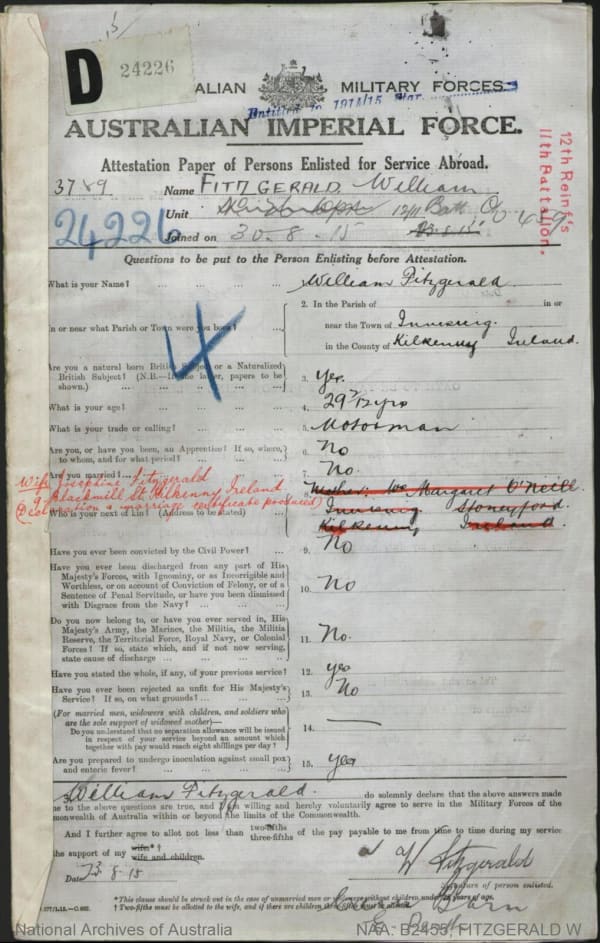 D 24226
ALIAN MILITARY FORCES.
Entitled to 1914/15 Star.
AUSTRALIAN IMPERIAL FORCE.
Attestation Paper of Persons Enlisted for Service Abroad.
12th Reinf's
11th Battalion.
3789 Name FITZGERALD William
24226
Unit 12/11 Batt
Joined on 30.8.15 23.8.15
Questions to be put to the Person Enlisting before Attestation.
What is your Name? ... ... ... William Fitzgerald
2. In the Parish of in or
In or near what Parish or Town were you born? ... near the Town of
in the County of Kilkenny Ireland.
4
Are you a natural born British Subject or a Naturalized
British Subject? (N.B.—In the latter, papers to be
shown.) ... ... ... 3. Yes.
What is your age? ... ... ... 4. 29 7/12 yrs
What is your trade or calling? ... ... 5. Motorman
Are you, or have you been, an Apprentice? If so, where,
to whom, and for what period? ... ... 6. No
Are you married? ... 7. No.
Wife Josephine Fitzgerald
9 Blackmill St. Kilkenny, Ireland
(Declaration & marriage certificate produced)
Who is your next of kin? (Address to be stated) 8. Mother Mrs Margaret O'Neill
Stoneyford
Kilkenny Ireland.
Have you ever been convicted by the Civil Power? ... 9. No
Have you ever been discharged from any part of His
Majesty's Forces, with Ignominy, or as Incorrigible and
Worthless, or on account of Conviction of Felony, or of a
Sentence of Penal Servitude, or have you been dismissed
with Disgrace from the Navy? ... ... 10. No
Do you now belong to, or have you ever served in, His
Majesty's Army, the Marines, the Militia, the Militia
Reserve, the Territorial Force, Royal Navy, or Colonial
Forces? If so, state which, and if not now serving,
state cause of discharge ... ... ... 11. No.
Have you stated the whole, if any, of your previous service? 12. yes
Have you ever been rejected as unfit for His Majesty's
Service? If so, on what grounds? ... ... 13. No
(For married men, widowers with children, and soldiers who
are the sole support of widowed mother)—
Do you understand that no separation allowance will be issued
in respect of your service beyond an amount which
together with pay would reach eight shillings per day? 14. —
Are you prepared to undergo inoculation against small pox
and enteric fever? ... ... ... 15. yes
I, William Fitzgerald do solemnly declare that the above answers made
me to the above questions are true, and I am willing and hereby voluntarily agree to serve in the Military Forces of the
monwealth of Australia within or beyond the limits of the Commonwealth.
And I further agree to allot not less than two-fifths three-fifths of the pay payable to me from time to time during my service
the support of my wife*† wife and children.
W Fitzgerald
Date 23.8.15 Signature of person enlisted.
*This clause should be struck out in the case of unmarried men or widowers without children under 18 years of age.
† Two-fifths must be allotted to the wife, and if there are children
National Archives of Australia NAA: B2455, FITZGERALD W